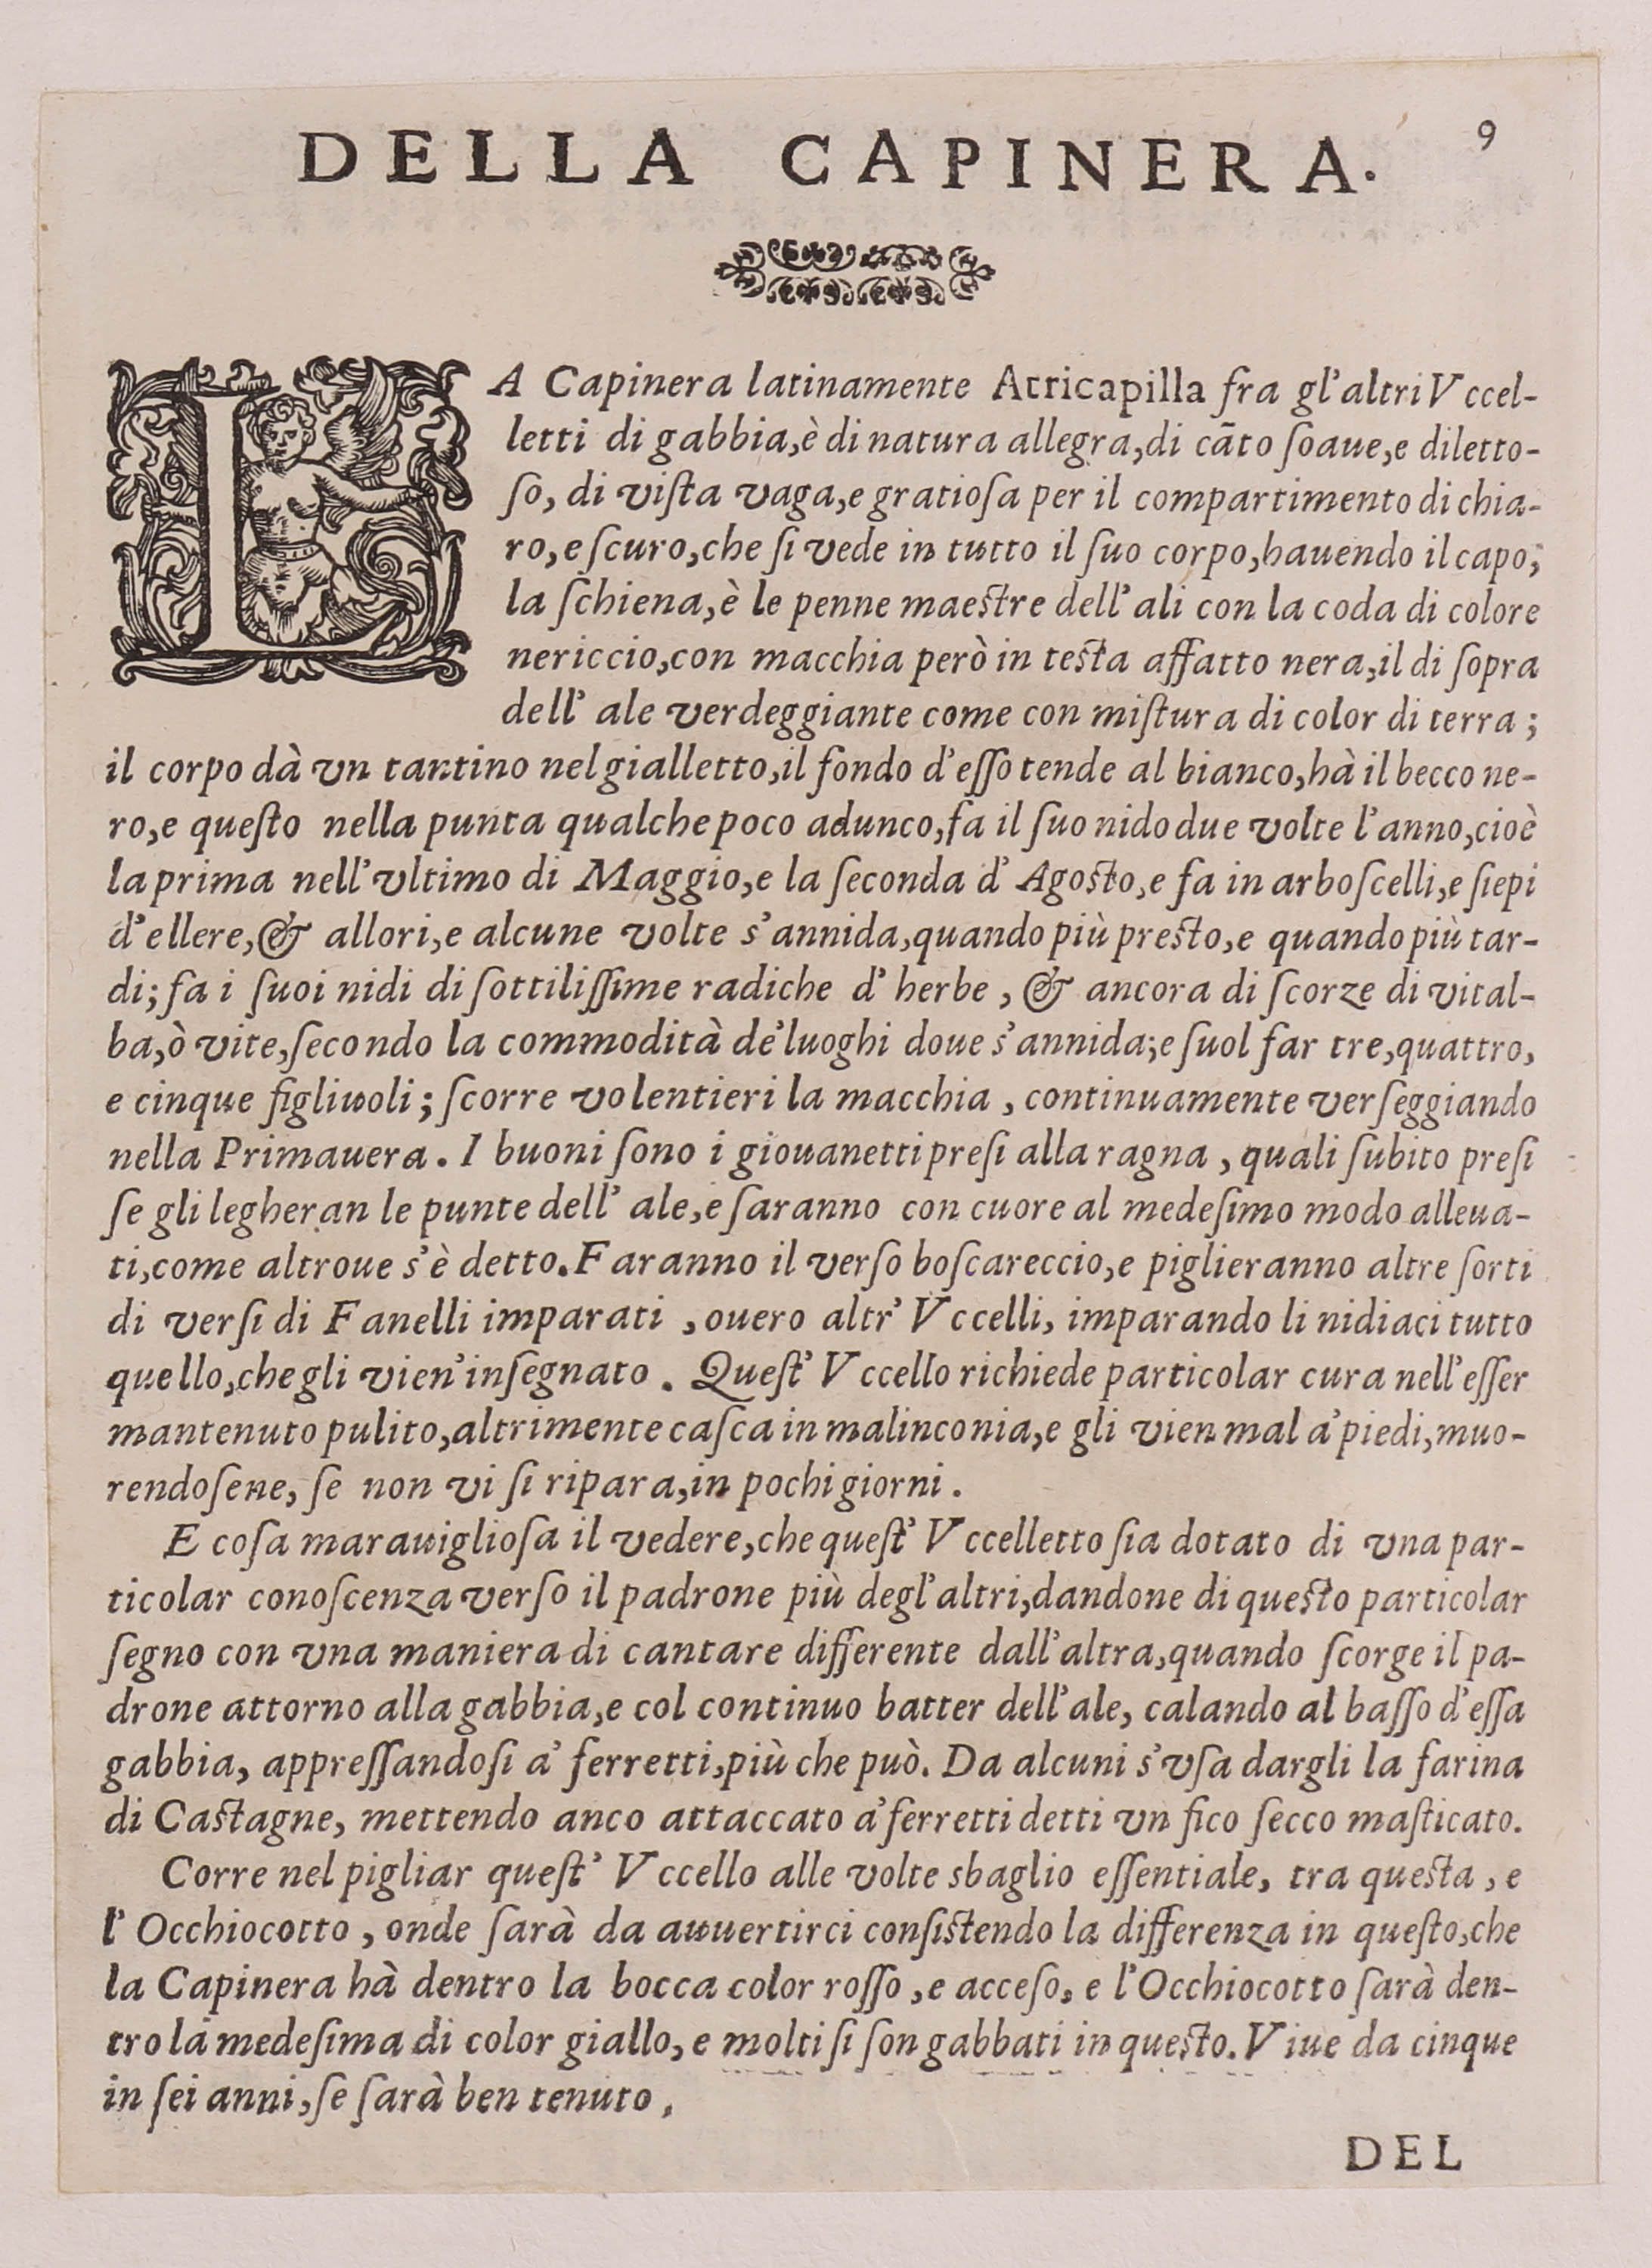 DELLA CAPINERA.
9
LA Capinera latinamente Atricapilla fra gl'altri Vccel-
letti di gabbia,è di natura allegra,di cāto ſoaue,e diletto-
ſo, di viſta vaga,e gratioſa per il compartimento di chia-
ro,e ſcuro,che ſi vede in tutto il ſuo corpo,hauendo il capo,
la ſchiena,è le penne maeſtre dell' ali con la coda di colore
nericcio,con macchia però in teſta affatto nera,il di ſopra
dell' ale verdeggiante come con miſtura di color di terra ;
il corpo dà vn tantino nel gialletto,il fondo d'eſſo tende al bianco,hà il becco ne-
ro,e queſto nella punta qualche poco adunco,fa il ſuo nido due volte l'anno,cioè
la prima nell'vltimo di Maggio,e la ſeconda d' Agoſto,e fa in arboſcelli,e ſiepi
d'ellere,& allori,e alcune volte s'annida,quando più preſto,e quando più tar-
di; fa i ſuoi nidi di ſottiliſſime radiche d' herbe , & ancora di ſcorze di vital-
ba,ò vite,ſecondo la commodità de'luoghi doue s'annida;e ſuol far tre,quattro,
e cinque figliuoli ; ſcorre volentieri la macchia , continuamente verſeggiando
nella Primauera . I buoni ſono i giouanetti preſi alla ragna , quali ſubito preſi
ſe gli legheran le punte dell' ale,e ſaranno con cuore al medeſimo modo alleua-
ti,come altroue s'è detto.Faranno il verſo boſcareccio,e piglieranno altre ſorti
di verſi di Fanelli imparati , ouero altr' Vccelli, imparando li nidiaci tutto
quello,che gli vien'inſegnato . Queſt' Vccello richiede particolar cura nell'eſſer
mantenuto pulito,altrimente caſca in malinconia,e gli vien mal a'piedi,muo-
rendoſene, ſe non vi ſi ripara,in pochi giorni .
E coſa marauiglioſa il vedere,che queſt' Vccelletto ſia dotato di vna par-
ticolar conoſcenza verſo il padrone più degl'altri,dandone di queſto particolar
ſegno con vna maniera di cantare differente dall'altra,quando ſcorge il pa-
drone attorno alla gabbia,e col continuo batter dell'ale, calando al baſſo d'eſſa
gabbia, appreſſandoſi a' ferretti,più che può. Da alcuni s'vſa dargli la farina
di Caſtagne, mettendo anco attaccato a'ferretti detti vn fico ſecco maſticato.
Corre nel pigliar queſt' Vccello alle volte sbaglio eſſentiale, tra queſta , e
l' Occhiocotto , onde ſarà da auuertirci conſiſtendo la differenza in queſto,che
la Capinera hà dentro la bocca color roſſo ,e acceſo, e l'Occhiocotto ſarà den-
tro la medeſima di color giallo, e molti ſi ſon gabbati in queſto. Viue da cinque
in ſei anni,ſe ſarà ben tenuto .
DEL